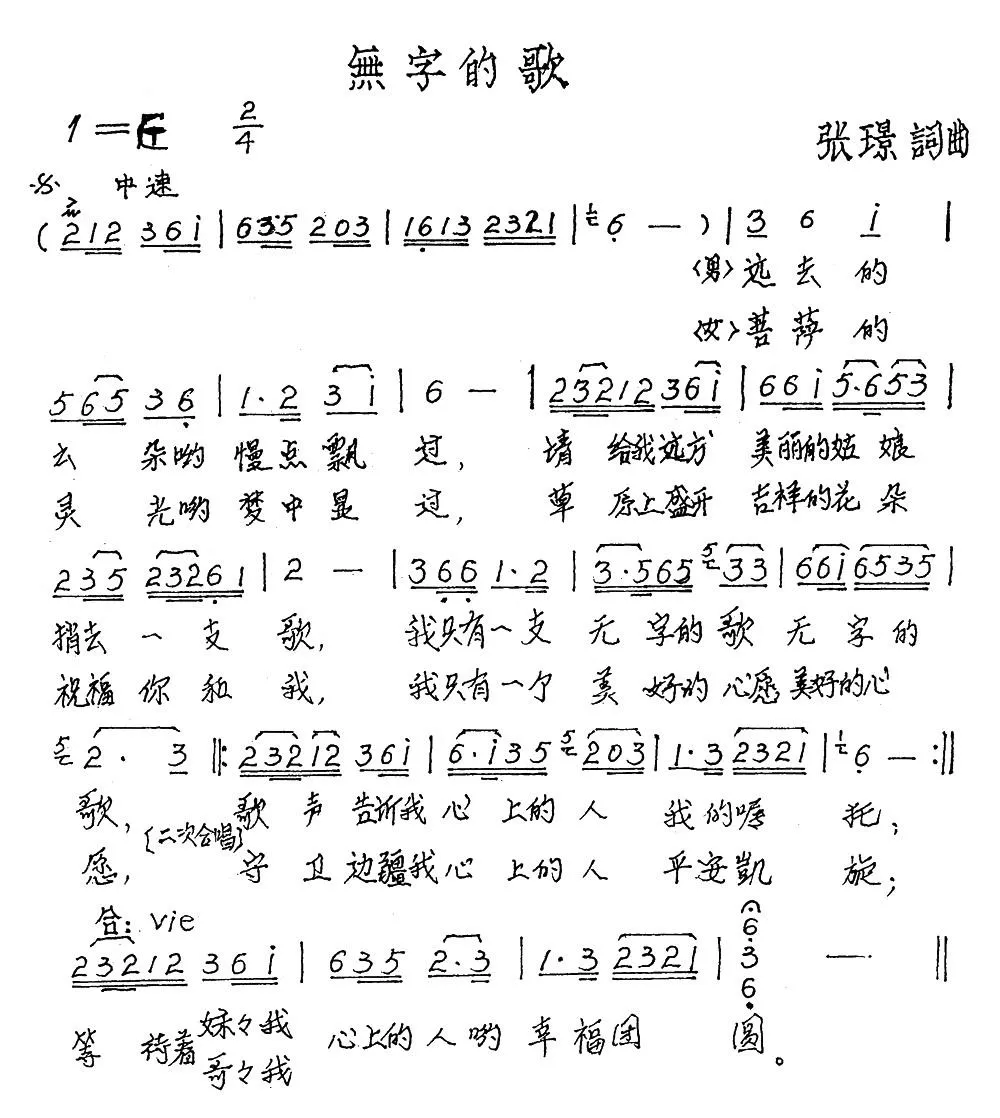 無字的歌
1=E 2/4
张璟 詞曲
中速
(212 36i | 635 203 | 1613 2321 | 6 — ) | 3 6 i |
〈男〉远去的
〈女〉菩萨的
565 36 | 1·2 3i | 6 — | 23212 36i | 66i 5·653 |
云 朵哟 慢点飘 过, 请 给我远方 美丽的姑 娘
灵 光哟 梦中显 过, 草 原上盛开 吉祥的花 朵
235 23261 | 2 — | 366 1·2 | 3·565 5 33 | 66i 6535 |
捎去 一 支 歌, 我只有一支 无 字的 歌 无 字 的
祝福 你 和 我, 我只有一个 美 好的 心愿 美好的心
5 2· 3 ‖: 23212 36i | 6·i35 5 203 | 1·3 2321 | 1 6 — :‖
歌, 歌 声 告诉我 心 上的 人 我的嘱 托;
〔二次合唱〕
愿, 守 卫 边疆我心 上的 人 平安凱 旋;
合: Vie
23212 36i | 635 2·3 | 1·3 2321 | 6 3 6 — ‖
等 待着 妹々我 心上的 人 哟 幸 福团 圆。
哥々我